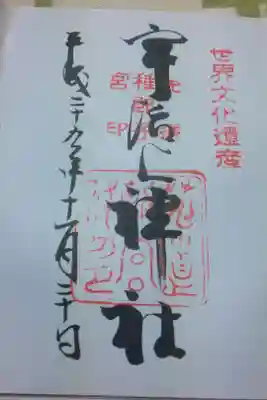 世界文化遺産
宇治上神社
平成二十九年十一月二十日